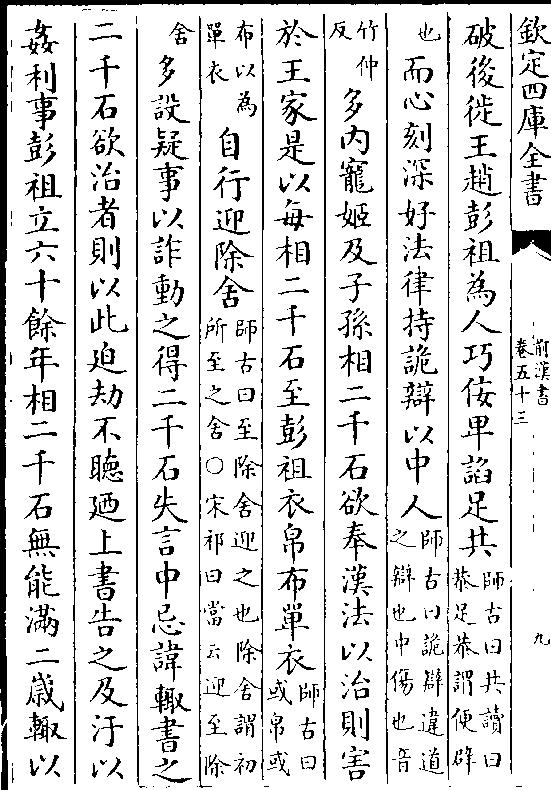 欽定四庫全書
前漢書
卷五十三
九
破後徙王趙彭祖為人巧佞卑諂足共師古曰共讀曰恭足恭謂便辟
也而心刻深好法律持詭辯以中人師古曰詭辯違道之辯也中傷也音
竹仲反多内寵姬及子孫相二千石欲奉漢法以治則害
於王家是以每相二千石至彭祖衣帛布單衣師古曰或帛或
布以為單衣自行迎除舍師古曰至除舍迎之也除舍謂初所至之舍○宋祁曰當云迎至除
舍多設疑事以詐動之得二千石失言中忌諱輙書之
二千石欲治者則以此迫劫不聽廼上書告之及汙以
姦利事彭祖立六十餘年相二千石無能滿二嵗輙以